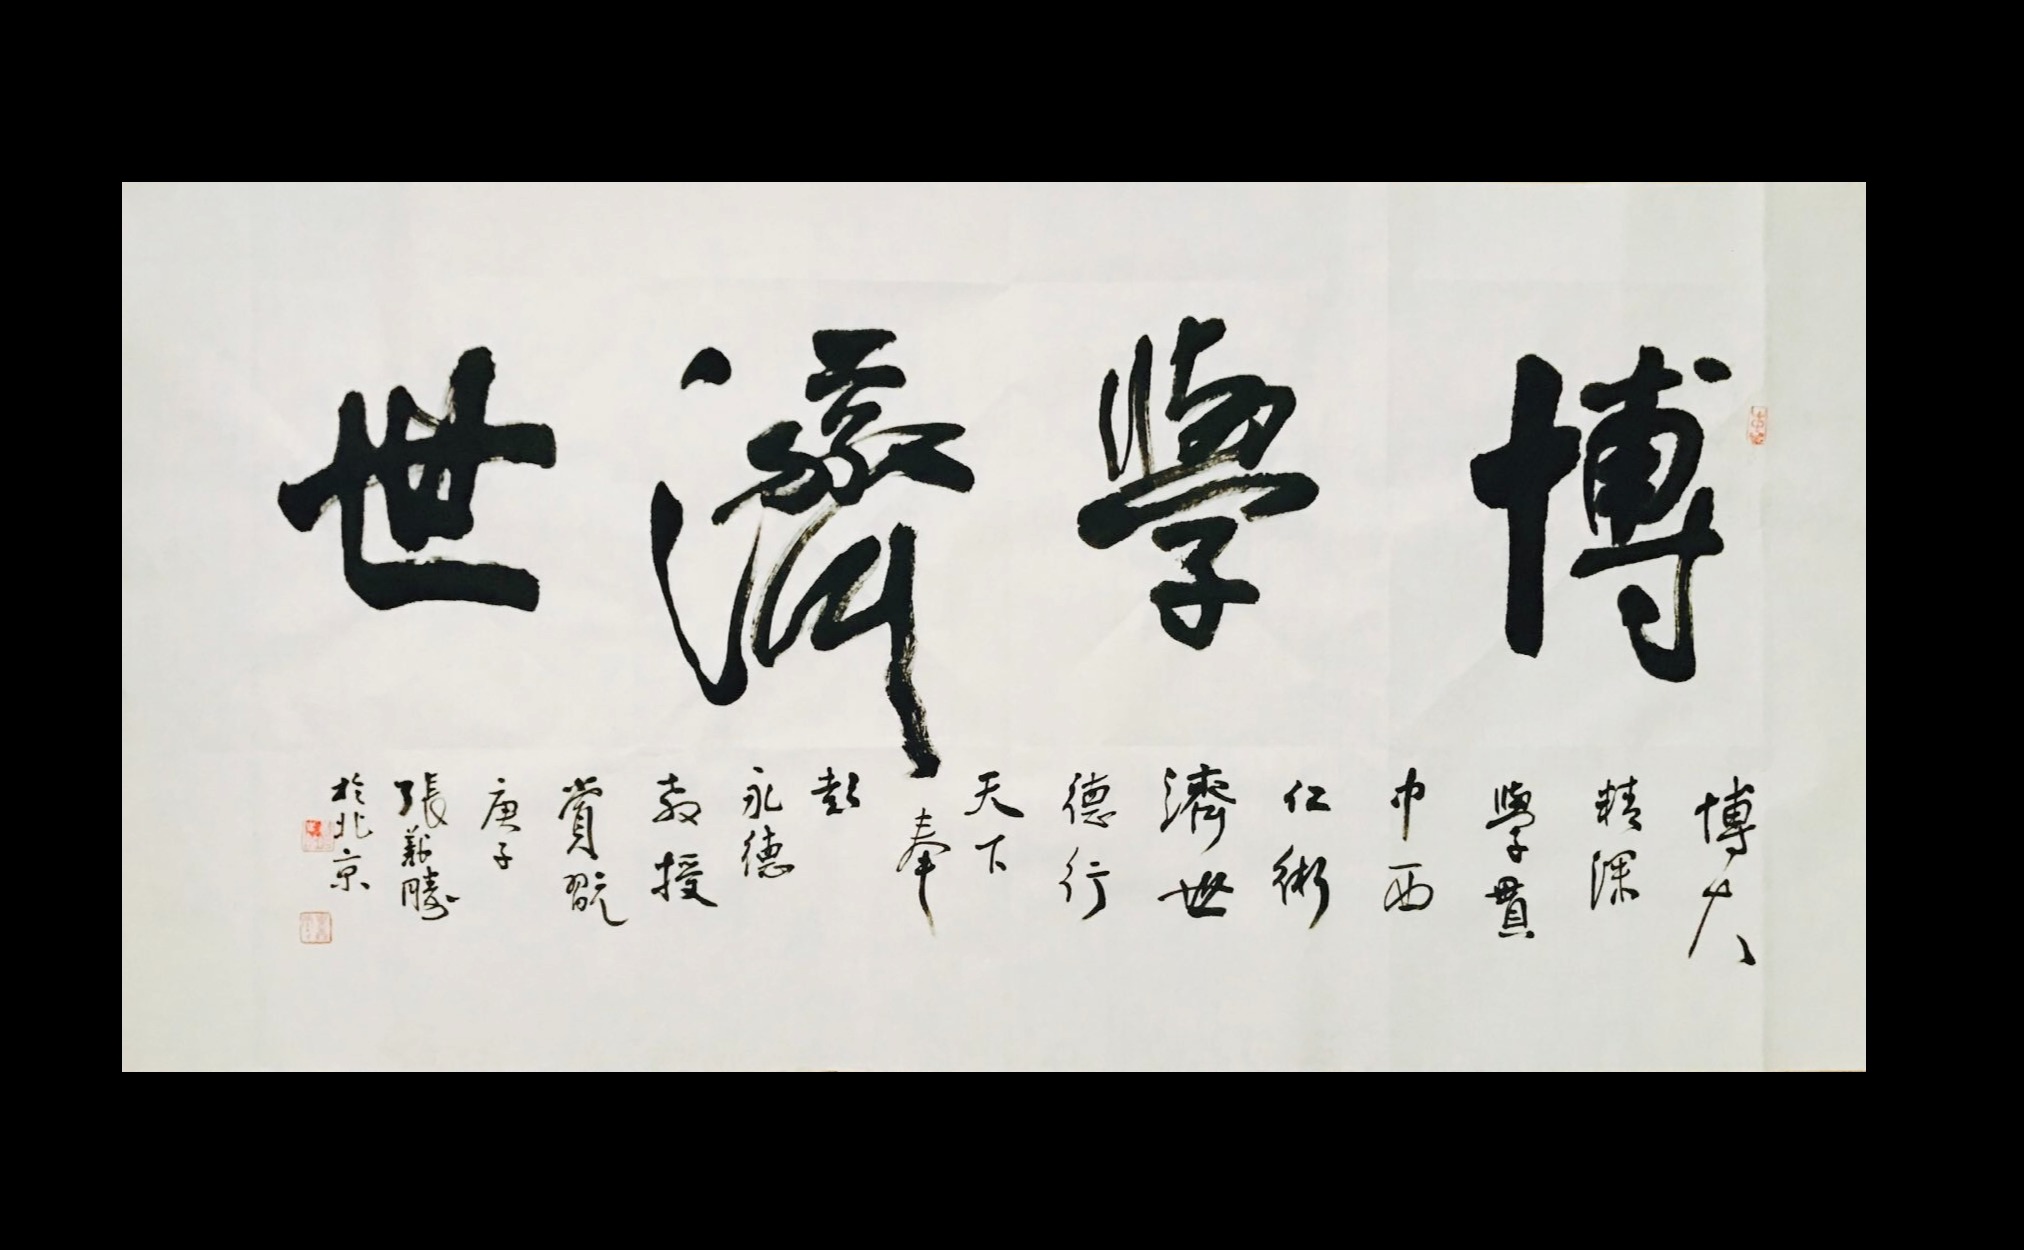 博學濟世
博大
精深
學貫
中西
仁術
濟世
德行
天下
奉
彭
永德
教授
賞翫
庚子
張 勝
於北京